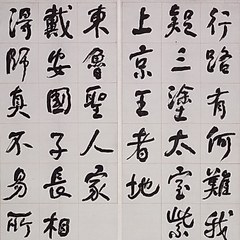 行路有何難我
疑三塗太室紫
上京王者地
東魯聖人家
戴安國子長相
得師真不易所